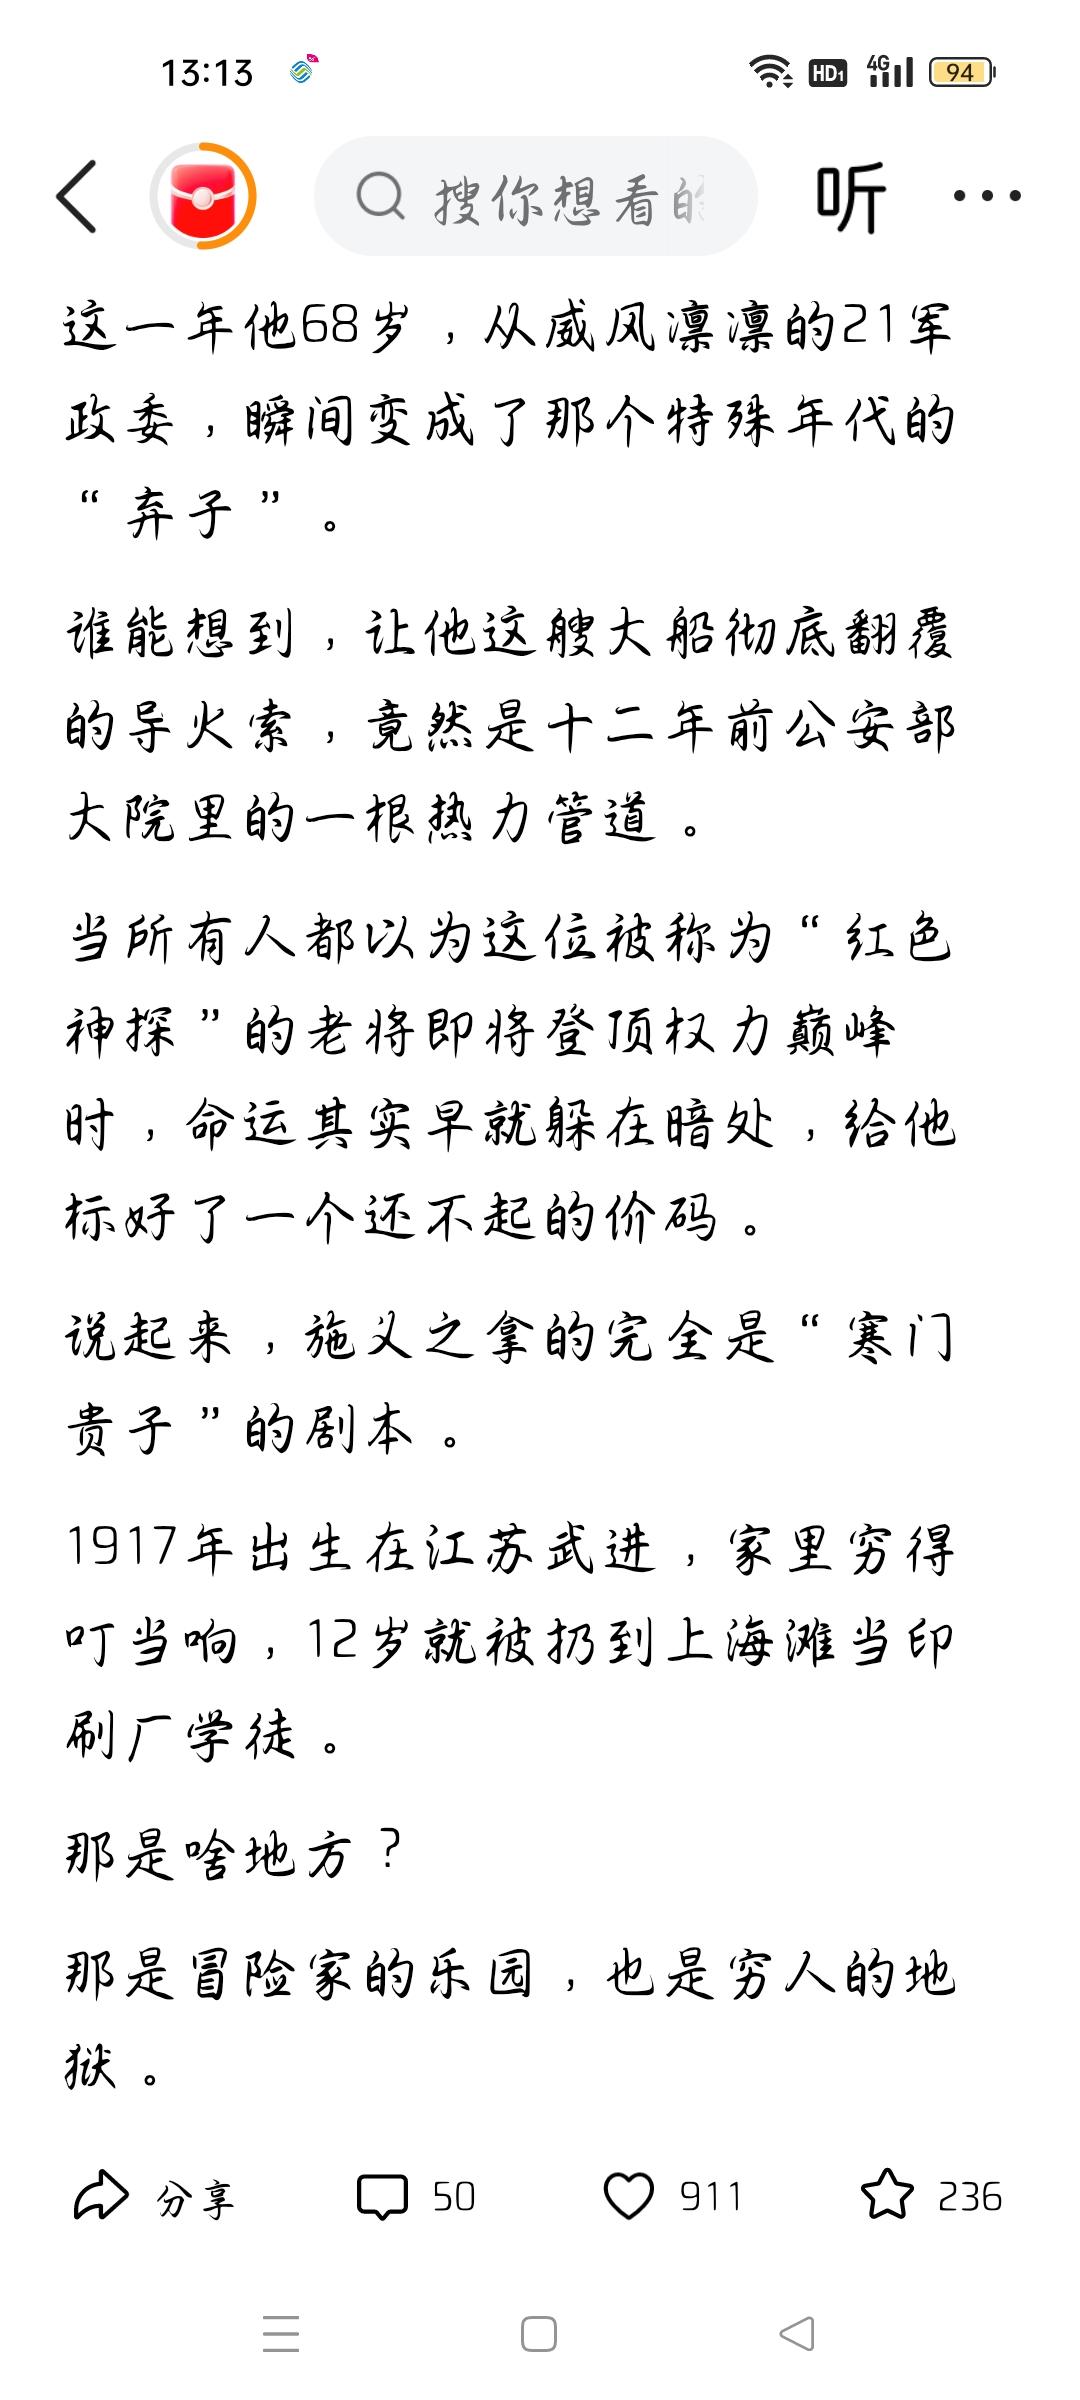 13:13
HD1
4G
94
搜你想看的
听
这一年他68岁，从威风凛凛的21军
政委，瞬间变成了那个特殊年代的
“弃子”。
谁能想到，让他这艘大船彻底翻覆
的导火索，竟然是十二年前公安部
大院里的一根热力管道。
当所有人都以为这位被称为“红色
神探”的老将即将登顶权力巅峰
时，命运其实早就躲在暗处，给他
标好了一个还不起的价码。
说起来，施义之拿的完全是“寒门
贵子”的剧本。
1917年出生在江苏武进，家里穷得
叮当响，12岁就被扔到上海滩当印
刷厂学徒。
那是啥地方？
那是冒险家的乐园，也是穷人的地
狱。
分享
50
911
236